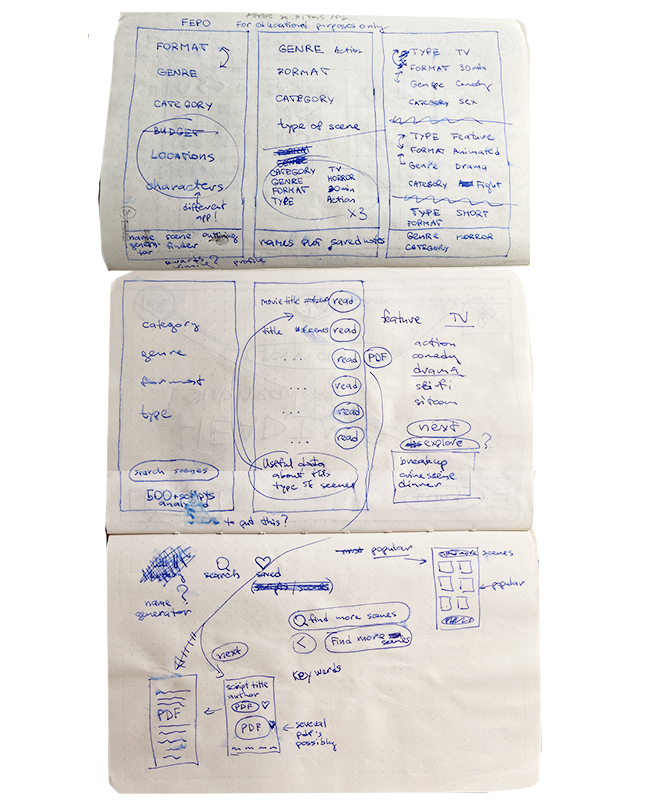 FEPO For educational purposes only
FORMAT
GENRE
CATEGORY
BUDGET
LOCATIONS
characters
different
app!
name scene outlining
genera- finder
tor
GENRE Action
FORMAT
CATEGORY
type of scene
FORMAT
GENRE
CATEGORY TV
GENRE HORROR
FORMAT 30min
TYPE Action
x3
names plot saved notes
TYPE TV
FORMAT 30min
Genre Comedy
CATEGORY SEX
TYPE Feature
FORMAT Animated
Genre Drama
CATEGORY Fight
TYPE SHORT
FORMAT
GENRE HORROR
CATEGORY
awards? profile
category
genre
format
type
search scenes
500+ scripts
analyzed
to put this?
movie title read
title # scenes read
read PDF
... read
... read
... read
Useful data
about this
type of scenes
feature TV
action
comedy
drama
sci-fi
sitcom
next
explore ?
breakup
crime scene
dinner
search
saved
scripts/scenes
name ?
generator
most popular
scenes
popular
find more scenes
< Find more scenes
next
key words
PDF
script title
author
PDF
PDF
several
pdf's
possibly